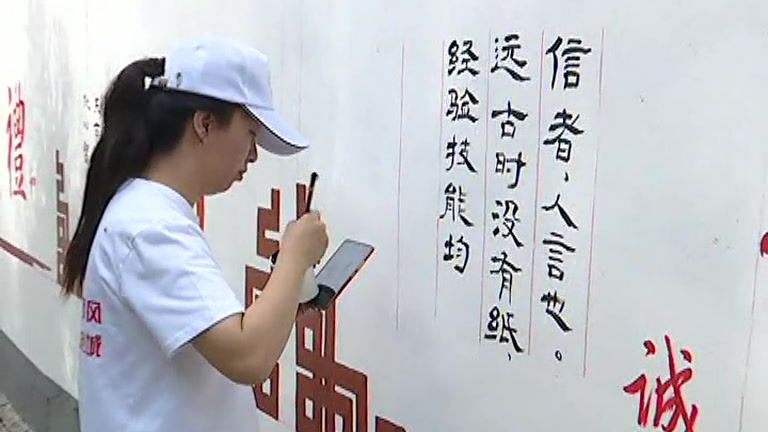 诚
信者，人言也。
远古时没有纸，
经验技能均
禮
风
城